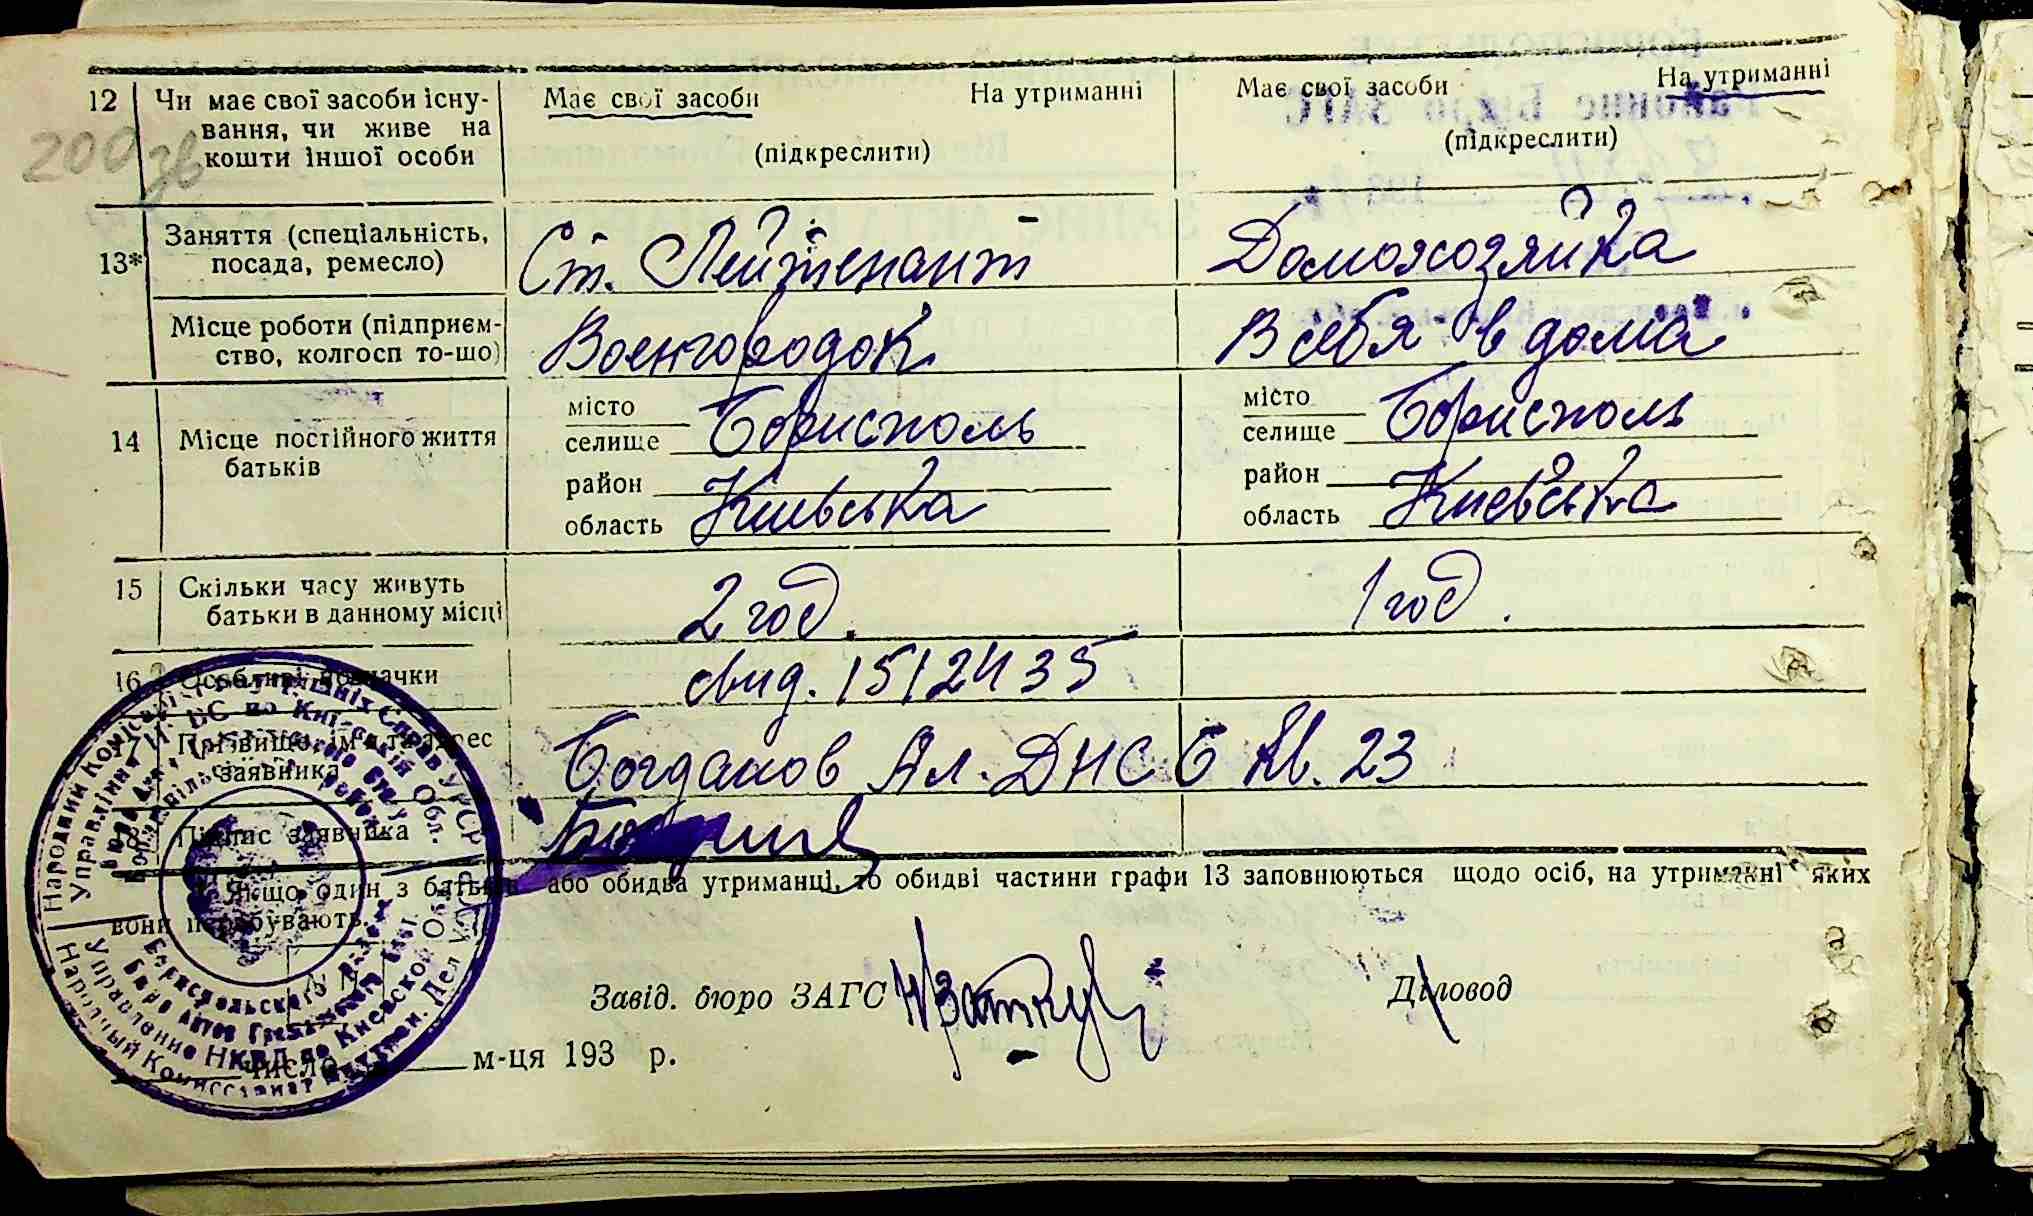 12 Чи має свої засоби існу-
вання, чи живе на
кошти іншої особи
Має свої засоби На утриманні
(підкреслити)
Має свої засоби На утриманні
(підкреслити)
200 зв
13* Заняття (спеціальність,
посада, ремесло)
Ст. Лейтенант
Домохозяйка
Місце роботи (підприєм-
ство, колгосп то-що)
Военгородок
В себя в дома
14 Місце постійного життя
батьків
місто
селище Борисполь
район
область Київська
місто
селище Борисполь
район
область Киевська
15 Скільки часу живуть
батьки в данному місці
2 год.
1 год.
16 Особливі позначки
свид. 1512435
17 Прізвище, ім'я та адрес
заявника
Богданов Ал. ДНС 6 кв. 23
18 Підпис заявника
* Якщо один з батьків або обидва утриманці, то обидві частини графи 13 заповнюються щодо осіб, на утриманні яких
вони перебувають.
Завід. бюро ЗАГС
Діловод
число м-ця 193 р.
Народний Комісаріат Внутрішніх Справ УРСР
Управління НКВС по Київській Обл.
Бориспольского района
Бюро Актов Гражданск. сост.
Управление НКВД по Киевской Обл.
Народный Комиссариат Внутрен. Дел УССР